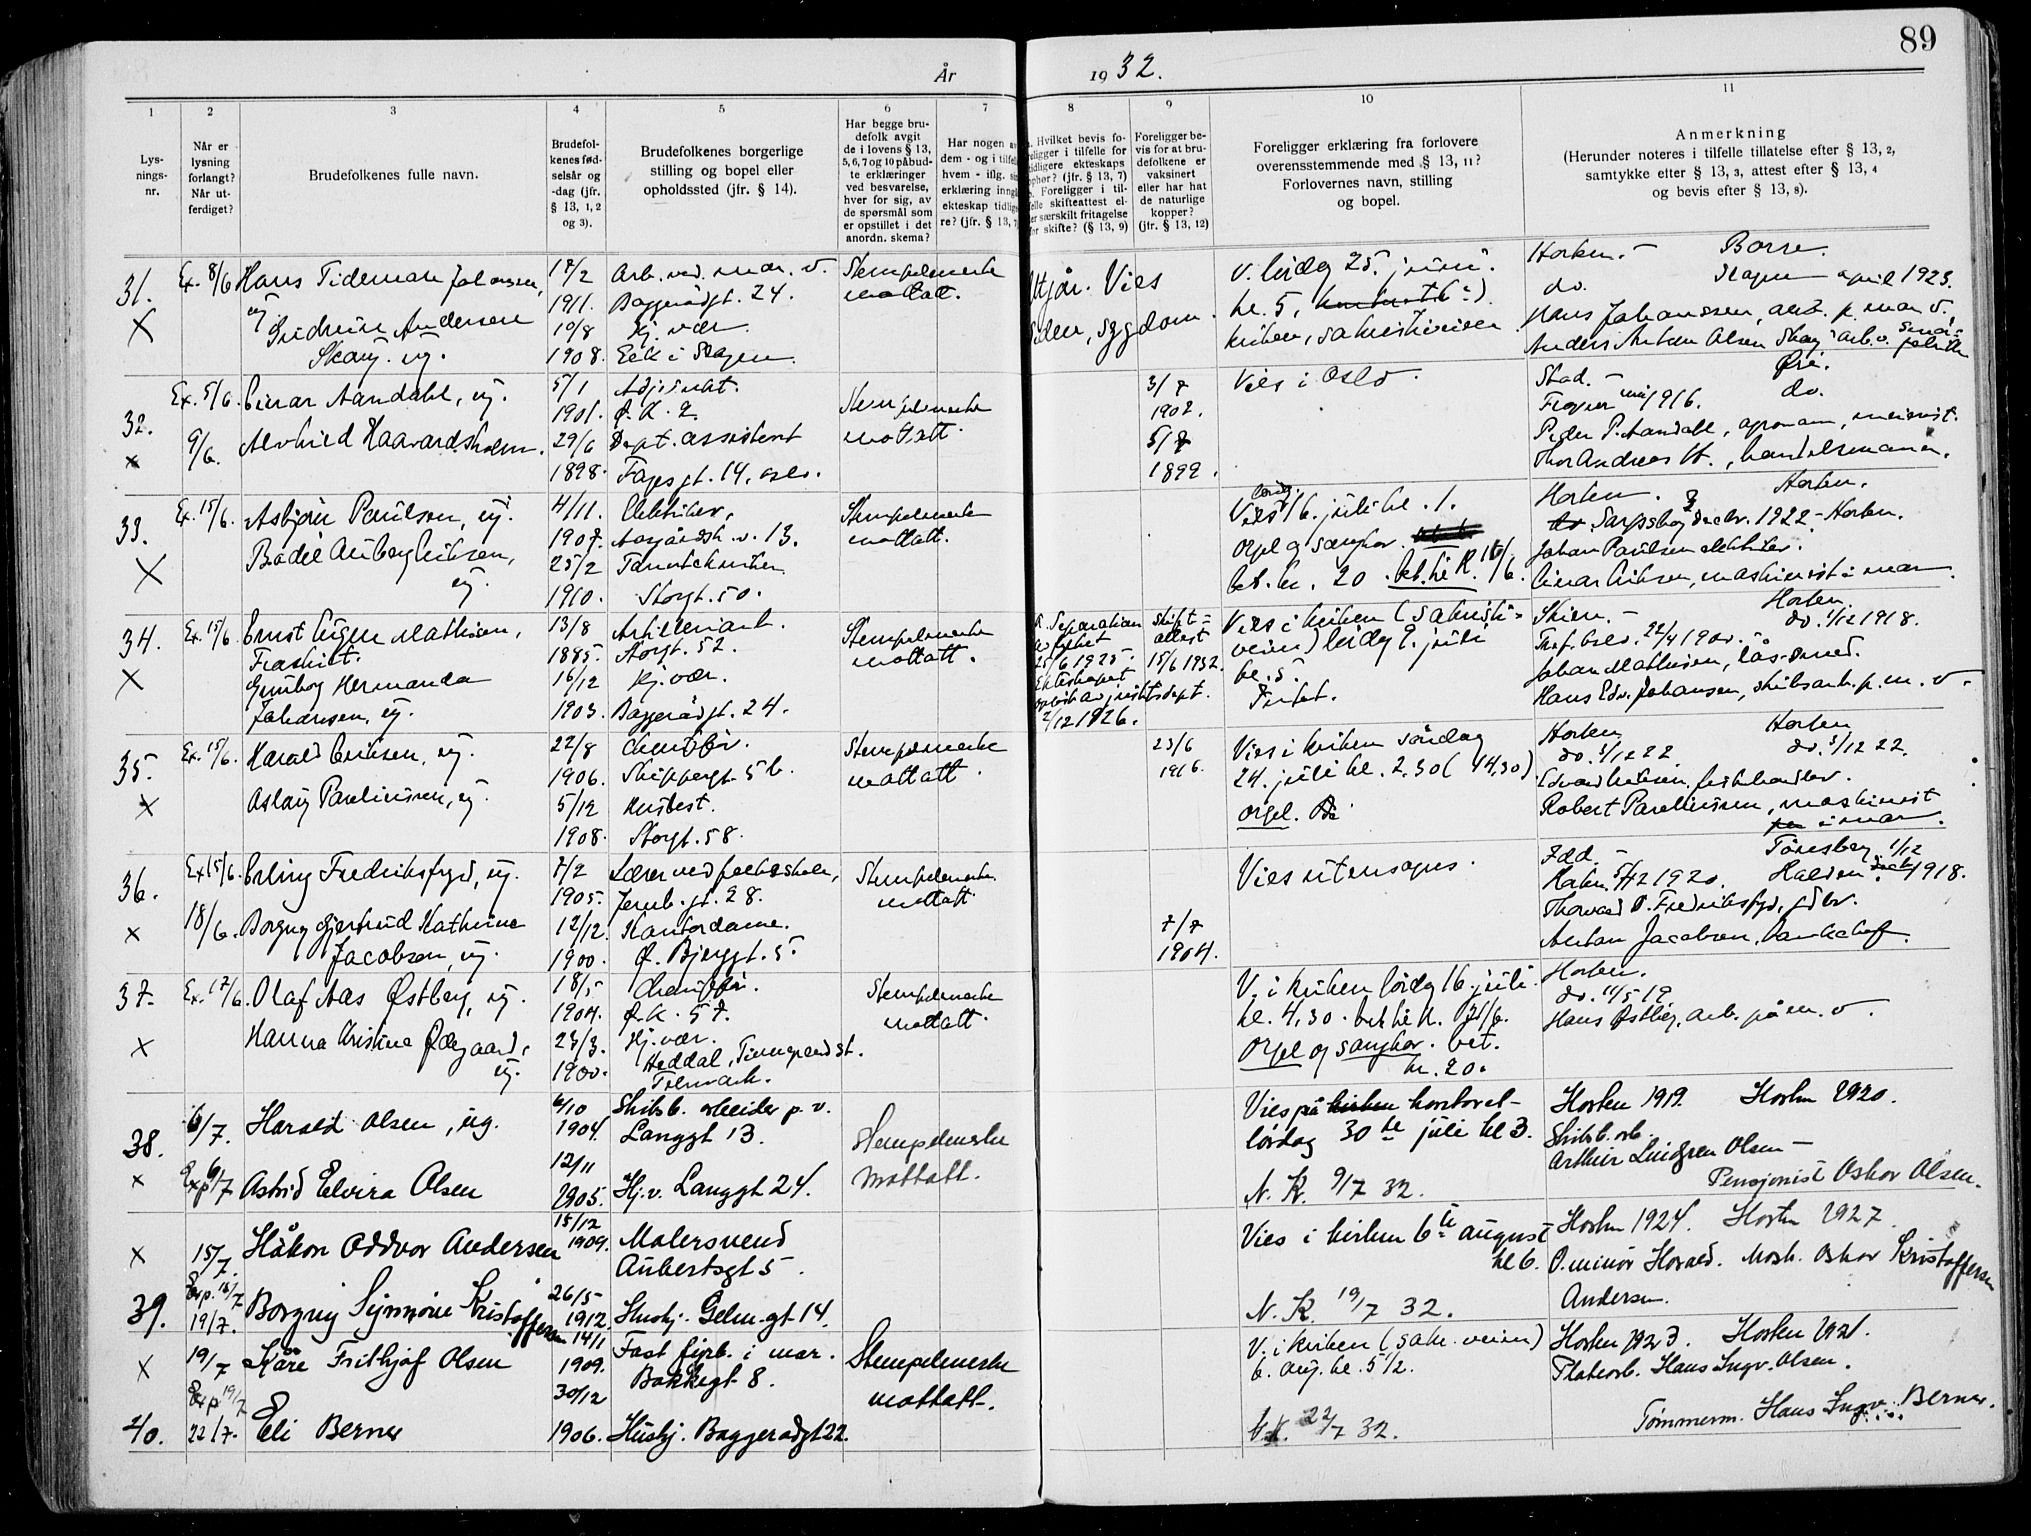 89
År 1932.
1 2 3 4 5 6 7 8 9 10 11
Lys-
nings-
nr.
Når er
lysning
forlangt?
Når ut-
ferdiget?
Brudefolkenes fulle navn.
Brudefol-
kenes fød-
selsår og
-dag (jfr.
§ 13, 1, 2
og 3).
Brudefolkenes borgerlige
stilling og bopel eller
opholdssted (jfr. § 14).
Har begge bru-
defolk avgit
de i lovens § 13,
5, 6, 7 og 10 påbud-
te erklæringer
ved besvarelse,
hver for sig, av
de spørsmål som
er opstillet i det
anordn. skema?
Har nogen
dem - og i
hvem - iflg.
erklæring
ekteskap
re? (jfr. § 13,
Hvilket bevis fo-
i tilfelle for
ekteskaps
(jfr. § 13, 7)
Foreligger i til-
skifteattest el-
særskilt fritagelse
skifte? (§ 13, 9)
Foreligger be-
vis for at bru-
defolkene er
vaksinert
eller har hat
de naturlige
kopper?
(jfr. § 13, 12)
Foreligger erklæring fra forlovere
overensstemmende med § 13, 11?
Forlovernes navn, stilling
og bopel.
Anmerkning
(Herunder noteres i tilfelle tillatelse efter § 13, 2,
samtykke etter § 13, 3, attest efter § 13, 4
og bevis efter § 13, 8).
31. Ex. 8/6 Hans Tideman Johansen, 17/2 Arb. ved mar. v. Stempelmerke Vies V. lørdag 25. juni. Horten. - Borre.
ug. 1911. Baggerødgt. 24. mottatt. kl. 5, do. Skagen april 1923.
X Andersen 10/8 Hj. vær. sygdom. kirken, sakristiveien Hans Johanssen, arb. p. mar. v.
Skaug. ug. 1908. Eik i Slagen. Anders Anton Olsen Skaug arb. v.
Ex. 5/6. Einar Aandahl, ug. 5/1 Adjunkt. 3/7 Vies i Oslo. Stad. - Øre.
32. 1901. Ø. K. 2. Stempelmerke 1902. Frogner mai 1916. do.
9/6. Alvhild Haavardsholm. 29/6 Dept. assistent mottatt 5/7 Peder P. Aandahl, agronom, meierist.
x 1898. Fagesgt. 14, Oslo. 1899. Thor Andreas H., handelsmann.
33. Ex. 15/6. Asbjørn Paulsen, ug. 4/11. Elektriker, Stempelmerke Vies lørdg. 16. juli kl. 1. Horten. Horten.
1907. 13. mottatt. orgel og sangkor. Sarpsborg decbr. 1922 - Horten.
Bodil Auberg Eriksen, 25/2 Tanntekniker Johan Paulsen elektriker.
X ug. 1910. Storgt. 50. bet. kr. 20. bet. til K. 16/6. Einar Eriksen, maskinist i mar.
34. Ex. 15/6. Ernst Eugen Mathisen, 13/8 Artilleriarb. Stempelmerke Separation skift= Vies i kirken (Sakristi= Skien. - Horten
Fraskilt. 1885. Storgt. 52. mottatt. attest veien) lørdg 2. juli 22/4 1900. - do. 1/12 1918.
X Gunborg Hermanda 16/12 Hj. vær. 25/6 1925. 15/6 1932. kl. 5. Johan Mathisen, låssmed.
Johansen, ug. 1903. Baggerødgt. 24. Ekteskapet justisdept. Fritet. Hans Edv. Johansen, skibsarb. p. m. v.
2/12 1926.
35. Ex. 15/6. Harald Eriksen, ug. 22/8 Chauffør. Stempelmerke 23/6 Vies i kirken søndag Horten Horten
1906. Skippergt. 5 b. mottatt. 1916. 24. juli kl. 2,30 (14,30) do. 3/12 22. do. 3/12 22.
Aslaug Paulinssen, ug. 5/12 Husbest. orgel. Edvard Eriksen, fiskehandler.
x 1908. Storgt. 58. Robert Paulinssen, maskinist
i mar.
36. Ex 15/6. Erling Fredriksfryd, ug. 7/2 Lærer ved folkeskolen, Stempelmerke Vies utensogns. Idd. - Tønsberg 1/12
1905. Jernb.gt. 28. mottatt 1920. Halden 1918.
x 18/6. Borgny Gjertrud Kathrine 12/12. Kontordame. 7/7 Thorvald O. Fredriksfryd,
Jacobsen, ug. 1900. Ø. Bjerggt. 5. 1904. Anton Jacobsen, banksjef.
37. Ex. 17/6. Olaf Aas Østberg, ug. 18/5 Chauffør. Stempelmerke V. i kirken lørdg 16. juli Horten.
1904. Ø. K. 57. mottatt. kl. 4,30. bet. til K. 21/6. do. 11/5 19
Hanna Kristine Ødegaard, 23/3. Hj. vær. Orgel og sangkor. bet. Hans Østberg, arb. på m. v.
x ug. 1900. Heddal, Tinnegrend st. kr. 20.
Telemark.
38. 6/7. Harald Olsen, ug. 6/10 Skibsb. arbeider p. v. Stempelmerke Vies på kirken kontoret - Horten 1919. Horten 1920.
1904. Langgt 13. mottatt. lørdag 30te juli kl 3. Skibsb. arb.
x Exp 6/7 Astrid Elvira Olsen 12/11 Arthur Lindgren Olsen -
1905. Hj. v. Langgt 24. N. K. 9/7 32. Pensjonist Oskar Olsen.
x 15/7. Håkon Oddvar Andersen 15/12 1909. Malersvend Vies i kirken 6te august Horten 1924. Horten 1927.
Aubertsgt 5. kl 6. O.minør Harald Mask. Oskar Kristoffersen
39. Exp. 18/7 19/7. Borgny Synnøve Kristoffersen 26/5 1912. Hushj. Gelm.gt 14. N. K. 19/7 32. Andersen.
x 19/7 Kåre Frithjof Olsen 14/11 1909. Fast fyrb. i mar. Stempelmerke V. i kirken (sakr. veien) Horten 1923. Horten 1921.
Bakkegt 8. mottatt. 6. aug. kl. 5 1/2. Platearb. Hans Ingv. Olsen.
40. Exp 19/7 22/7. Eli Berner 30/12 1906. Hushj. Baggerødgt 22. 22/7 32. Tømmerm. Hans Ingv. Berner.